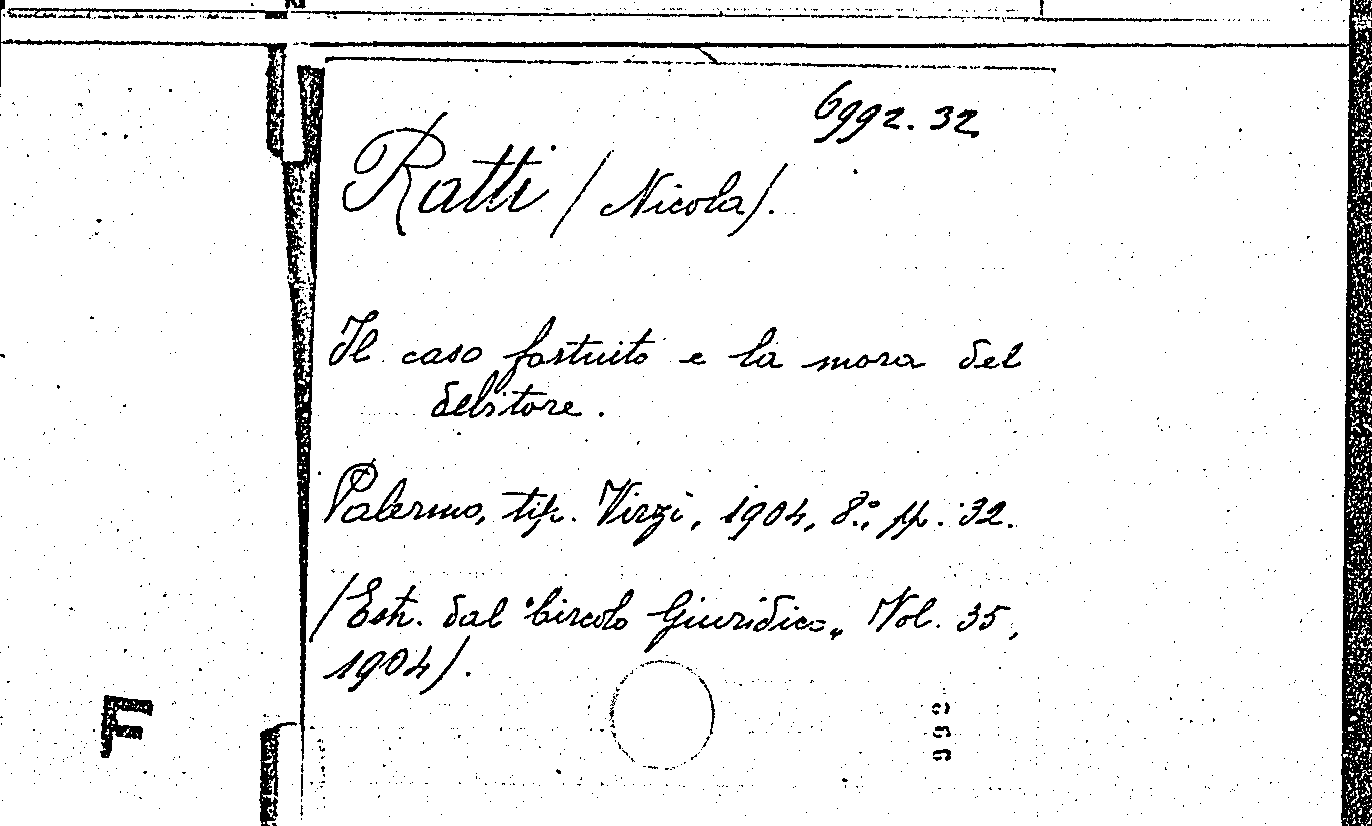 6992.32
Ratti / Nicola /.
Il caso fortuito e la mora del
debitore.
Palermo, tip. Virzì, 1904, 8.°, pp. 32.
/ Estr. dal "Circolo Giuridico„ Vol. 35,
1904 /.
F